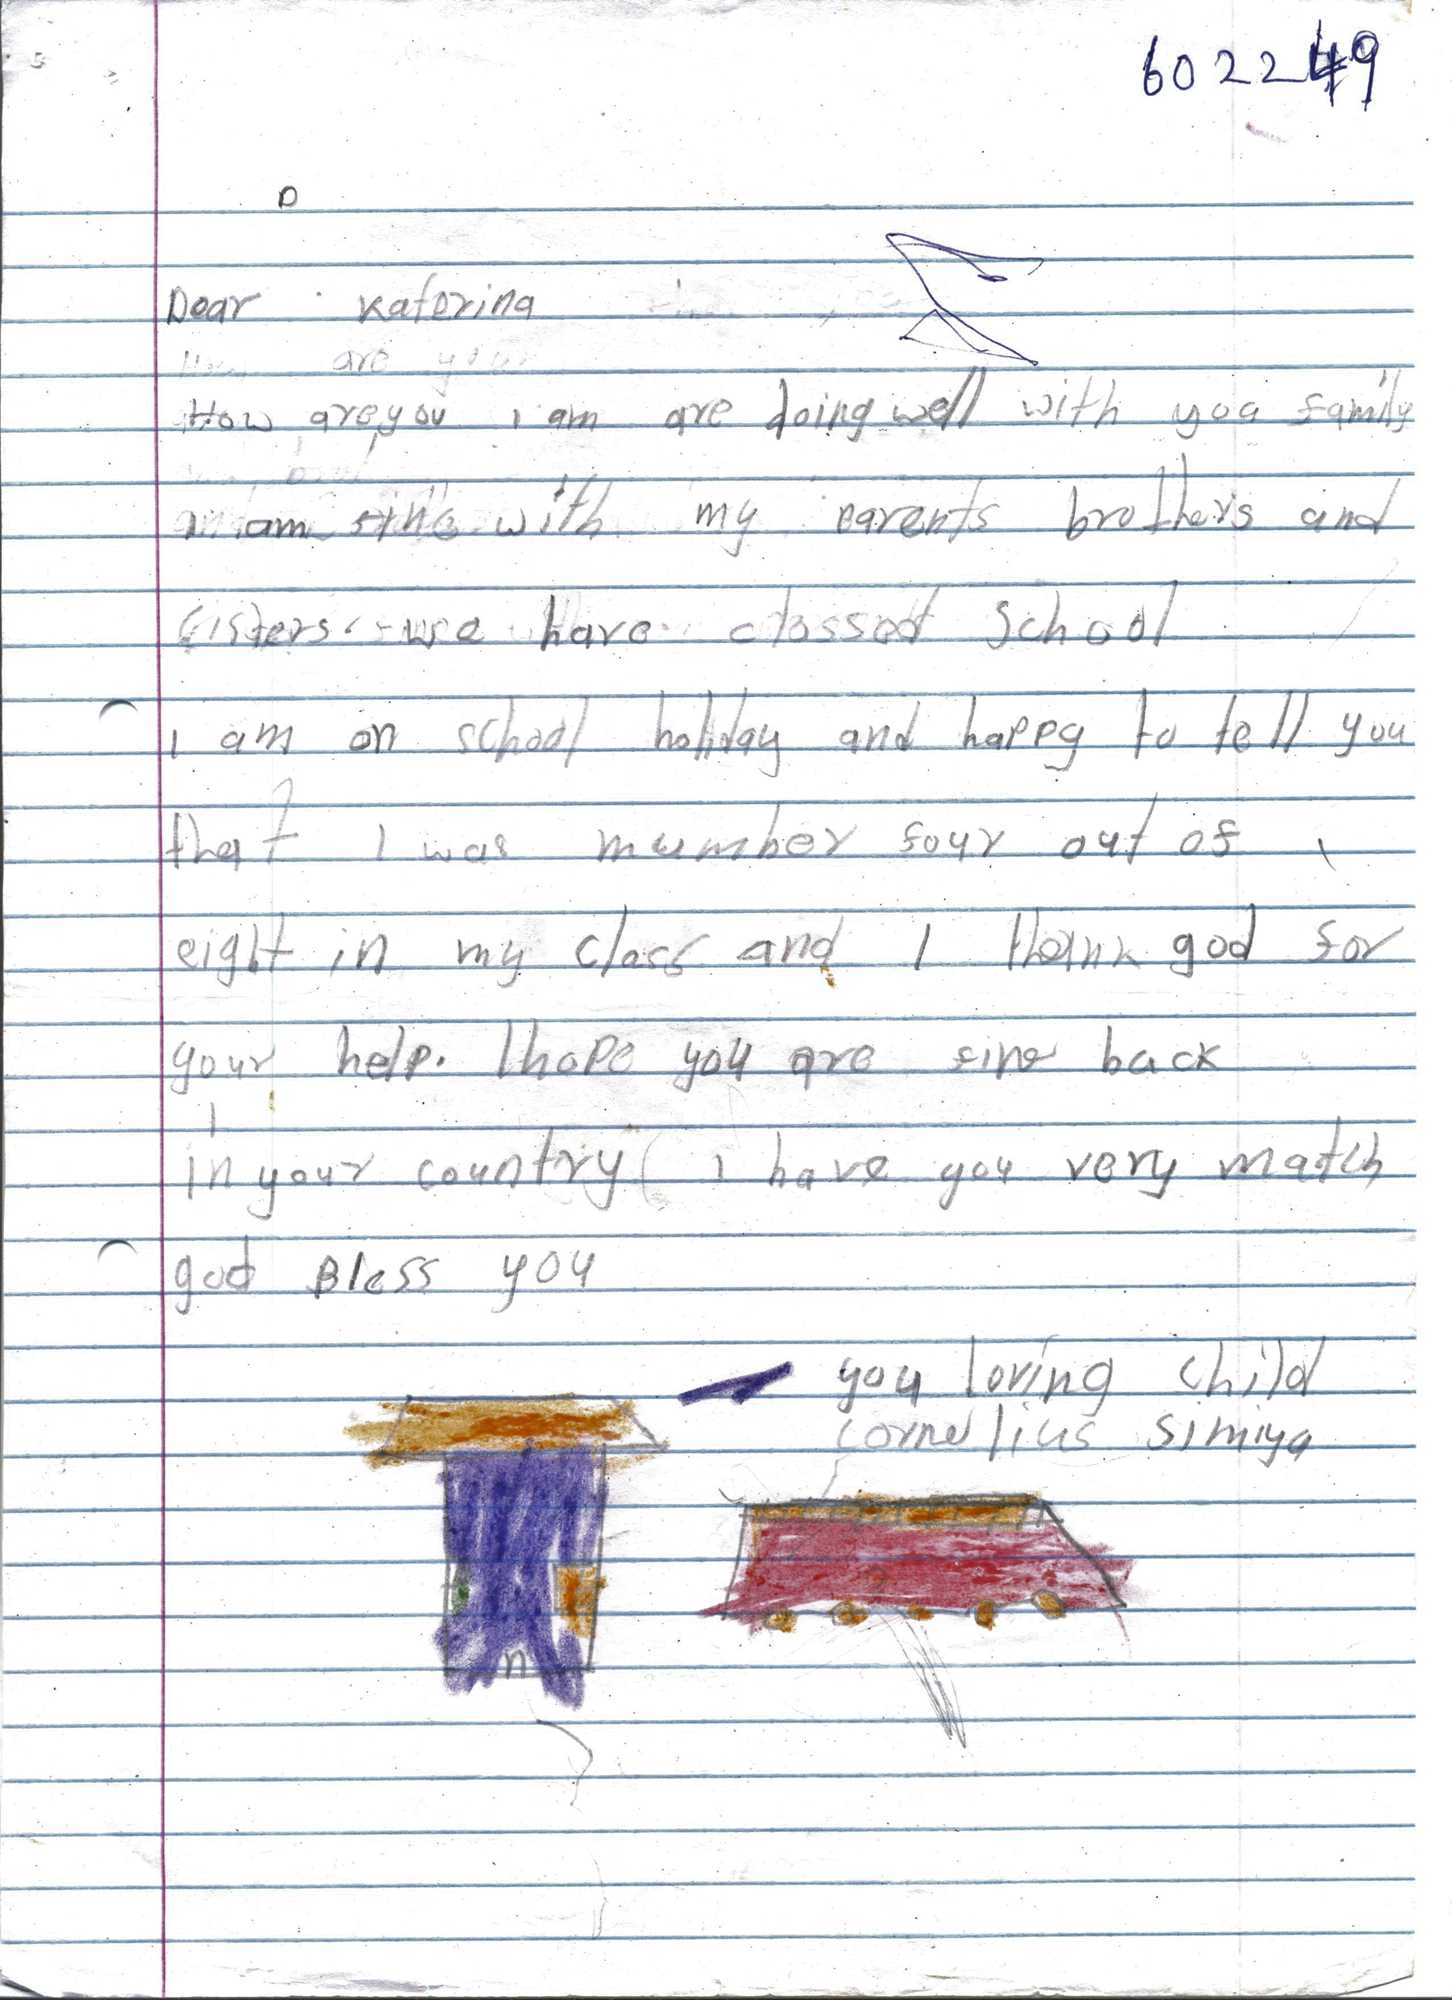 602249
Dear Katerina
How are you
How are you i am are doing well with you family
i am fine with my parents brothers and
sisters we have clossed school
i am on school holiday and happy to tell you
that I was mumber four out of
eight in my class and I thank god for
your help. I hope you are fine back
in your country i have you very match
god Bless you
you loving child
cornelius simiya